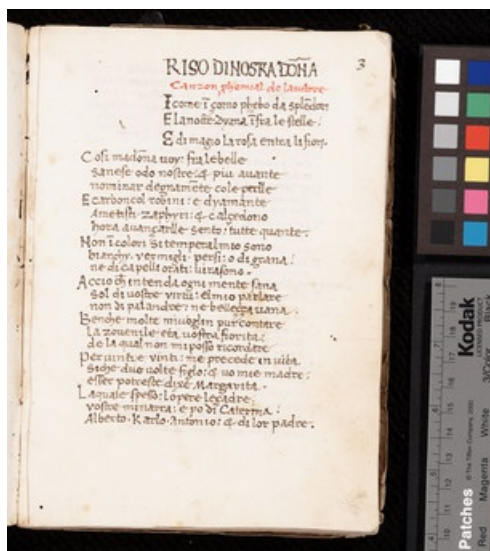 RISO DI NOSTRA DOÑA 3
Canzon
I come ī como phebo da splēdor:
E la nocte Dyana īfra le stelle:
E di magio la rosa entra li fiori.
Cosi madōna uoy: fra le belle
sanese odo nostre: & piu auante
nominar degnamēte cole pelle
E carboncol robini: e dyamante
Ametisti zaphyri: & calcedono
hora auançarlle sento: tutte quante.
Non i colori si temperal mio sono
bianchy. vermigli. persi: o di grana:
ne di capelli orati:
Accio chī intenda ogni mente sana
sol di uostre virtu: el mio parlare
non di palandre: ne belleça uana.
Benche molte miuoglin pur contare
la zouenile eta, uostra fiorita:
de la qual non mi posso ricordare
Per uinti e vinti: me precede in uita
siche duo volte figlo: & uo mie madre:
esser potreste dixe Margarita.
La quale spesso: lopere legadre,
vostre minarra: e po di Caterina:
Alberto. Karlo. Antonio: & di lor padre.
Kodak
LICENSED PRODUCT
Black
3/Color
White
Magenta
Red
Patches
© The Tiffen Company, 2000